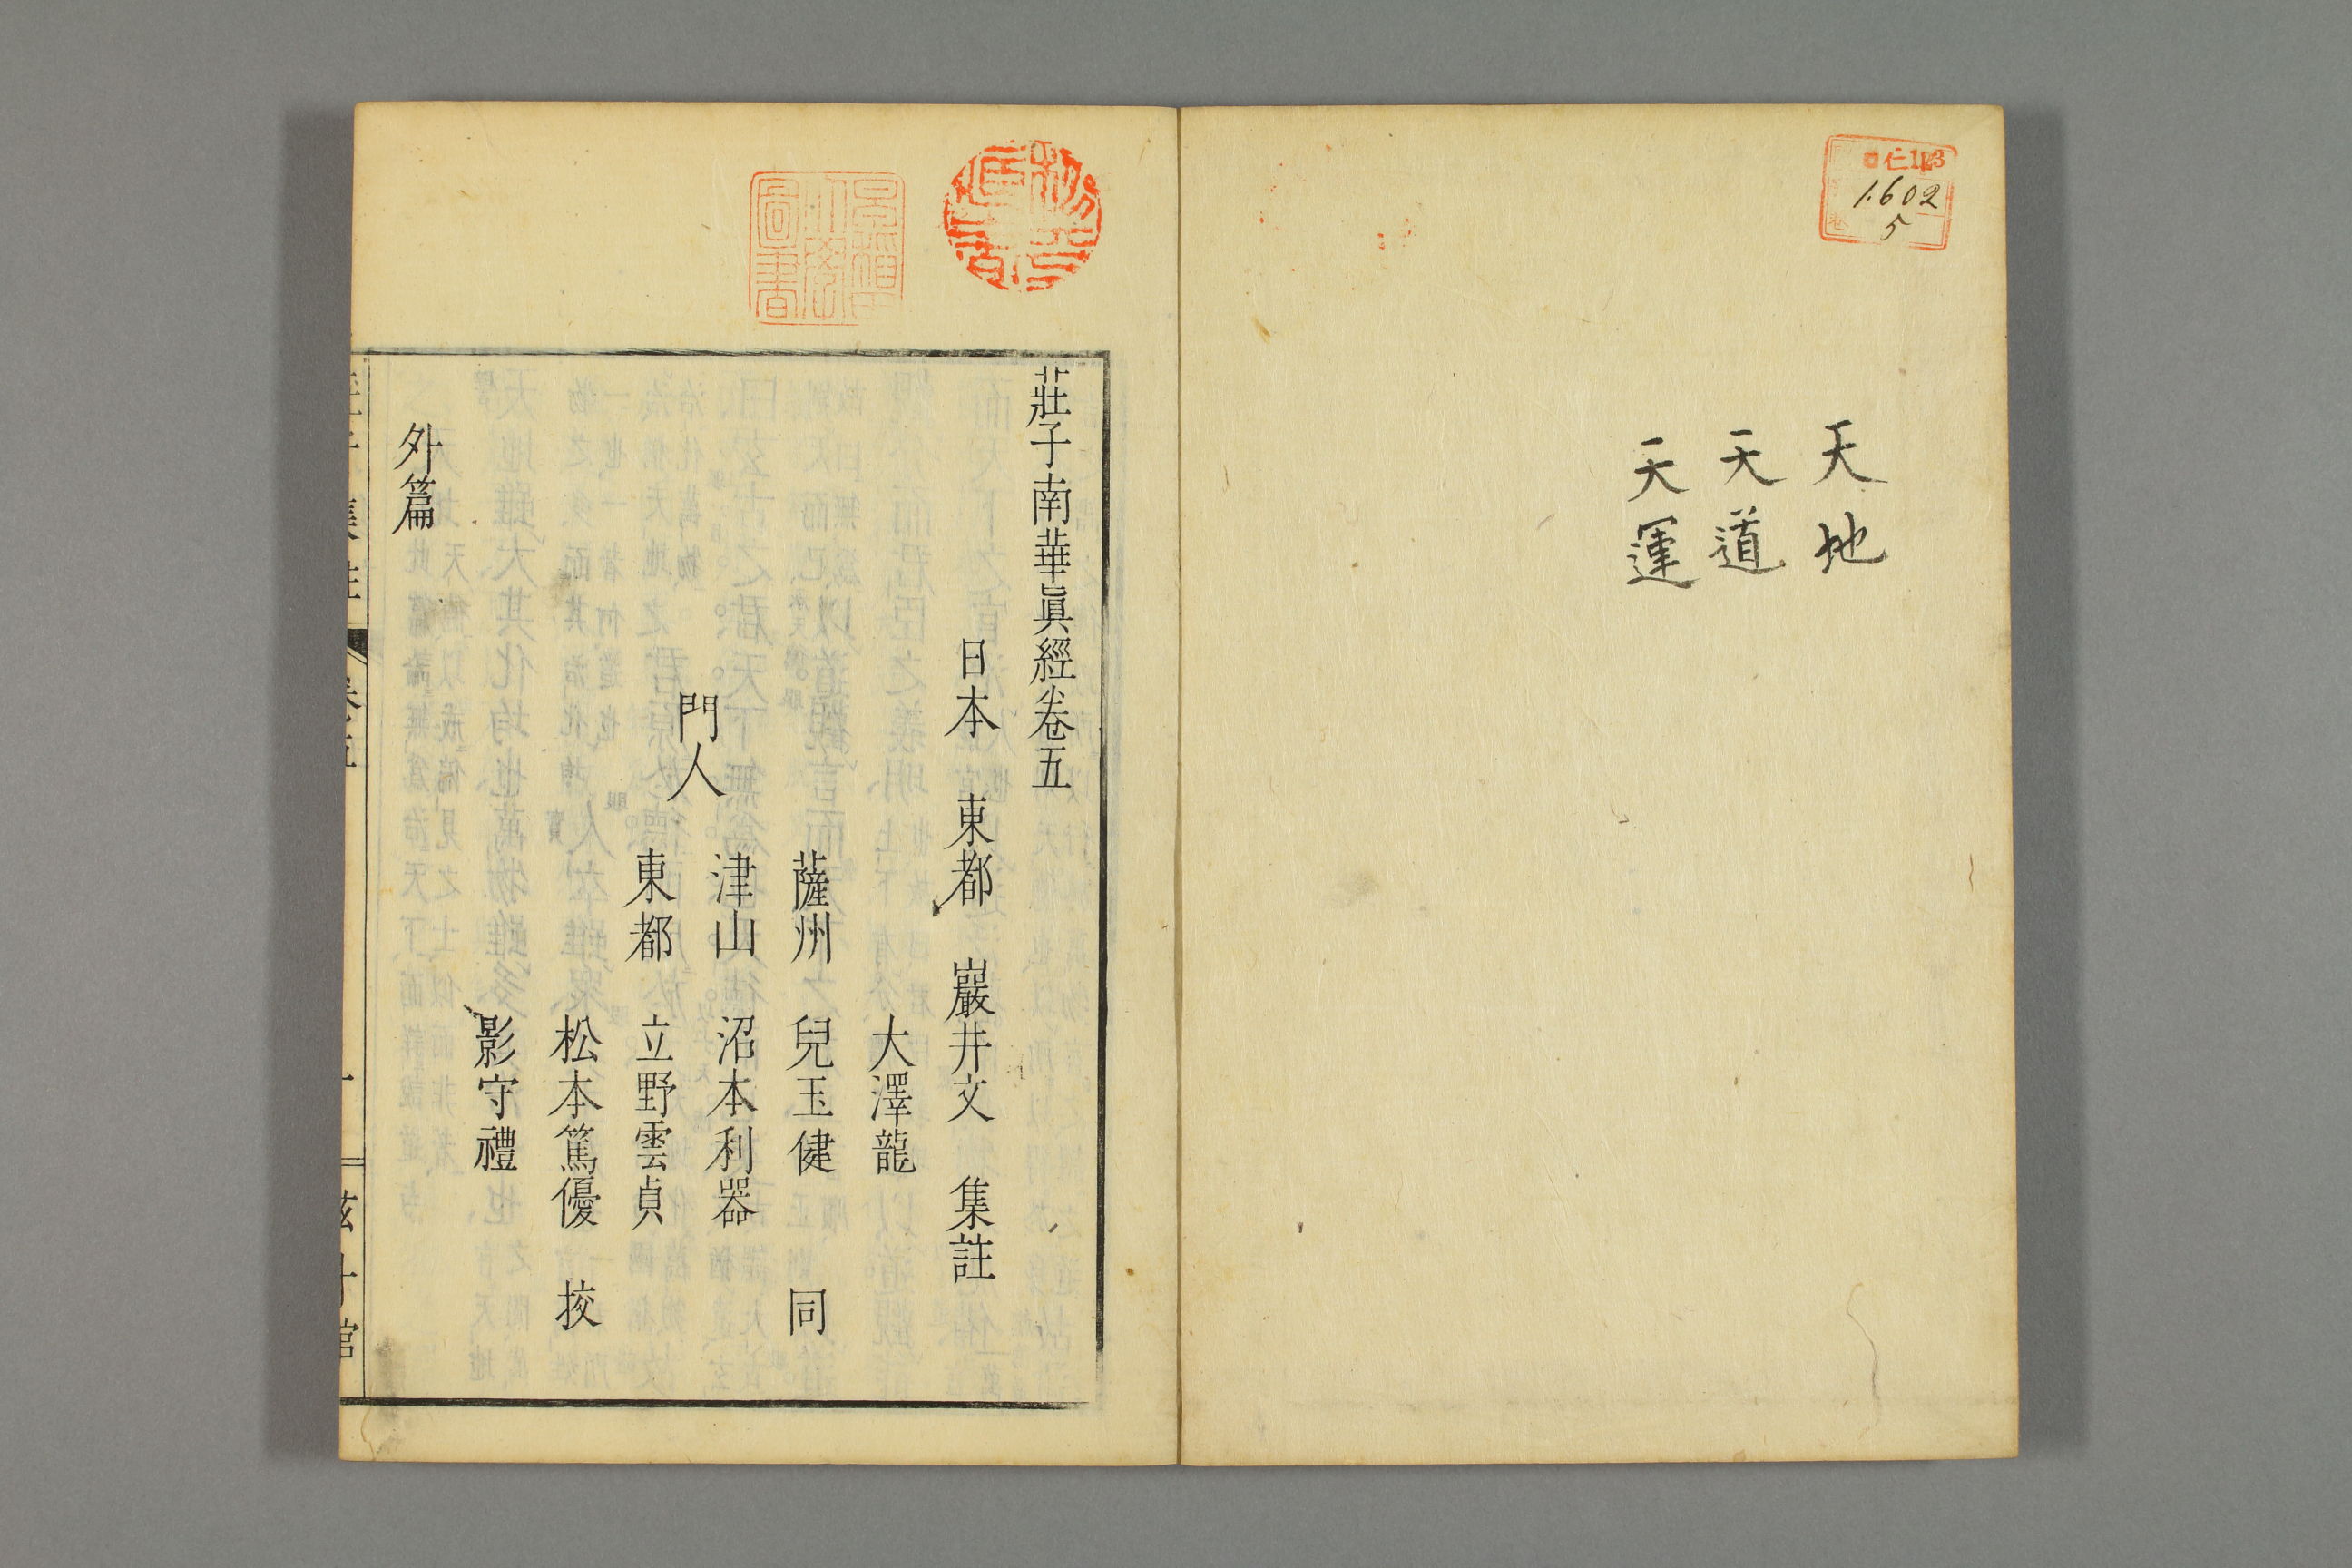 仁123
1.602
5
天地
天道
天運
莊子南華眞經卷五
日本 東都 巖井文 集註
大澤龍
薩州 兒玉健 同
津山 沼本利器
門人
東都 立野雲貞
松本篤優 挍
影守禮
外篇